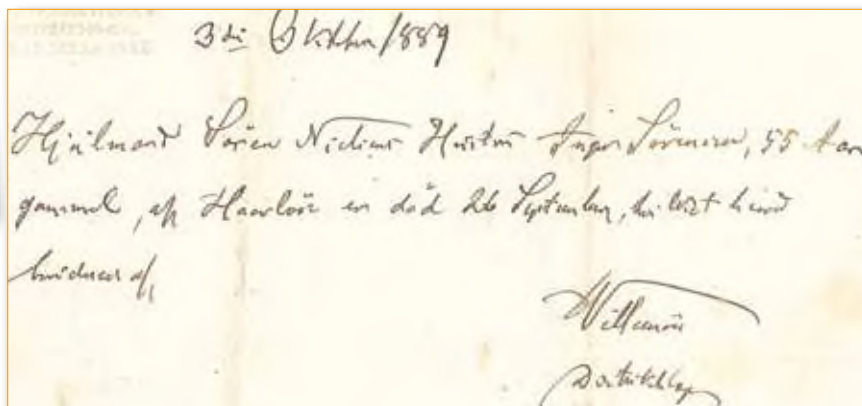 3die Oktober 1889
Hjulmand Sören Nielsens Hustru Inger Sörensen, 55 Aar
gammel, af Haarlöv er död 26 September, hvilket herved
bevidnes af,
Willemoës
Distriktslæge